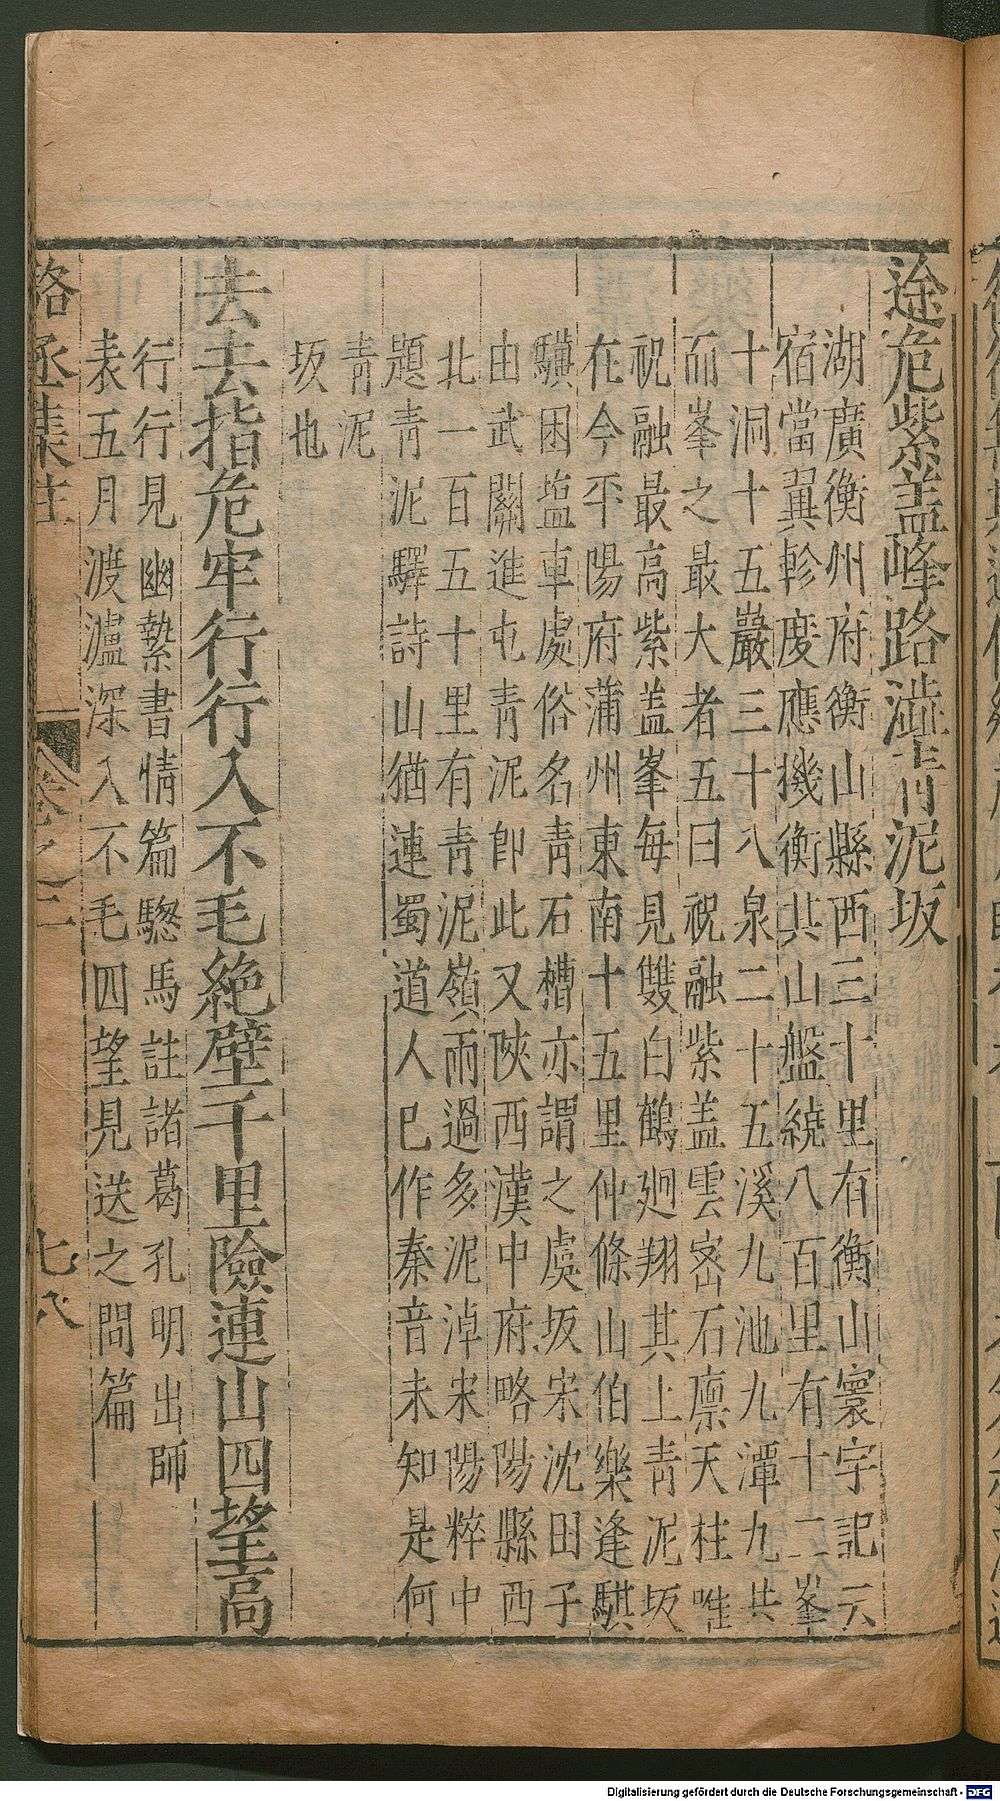 途危紫蓋峰路澁青泥坂
湖廣衡州府衡山縣西三十里有衡山寰宇記云
宿當翼軫度應機衡其山盤繞八百里有十二峯
十洞十五巖三十八泉二十五溪九池九潭九井
而峯之最大者五曰祝融紫蓋雲宻石廪天柱唯
祝融最高紫蓋峯每見雙白鶴迴翔其上青泥坂
在今平陽府蒲州東南十五里仲條山伯樂逢騏
驥困塩車處俗名青石槽亦謂之虞坂宋沈田子
由武關進屯青泥卽此又陝西漢中府略陽縣西
北一百五十里有青泥嶺雨過多泥淖宋陽粹中
題青泥驛詩山猶連蜀道人巳作秦音未知是何
青泥
坂也
去去指危牢行行入不毛絶壁千里險連山四望高
行行見幽縶書情篇驄馬註諸葛孔明出師
表五月渡瀘深入不毛四望見送之問篇
駱丞集註
卷之二
七八
Digitalisierung gefördert durch die Deutsche Forschungsgemeinschaft - DFG